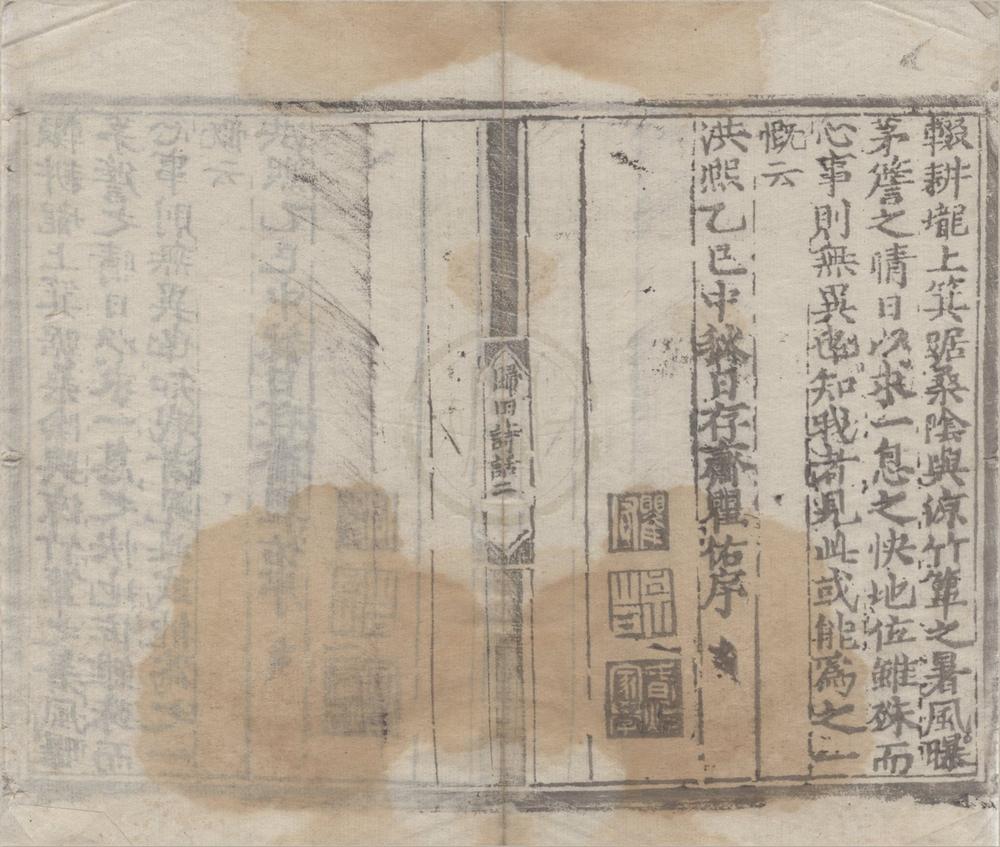 輟耕壠上箕踞桑陰與凉竹簟之暑風曝
茅簷之晴日以求一息之快地位雖殊而
心事則無異也知我者見此或能爲之一
慨云
洪熙乙巳中秋日存齋瞿佑序
歸田詩話二